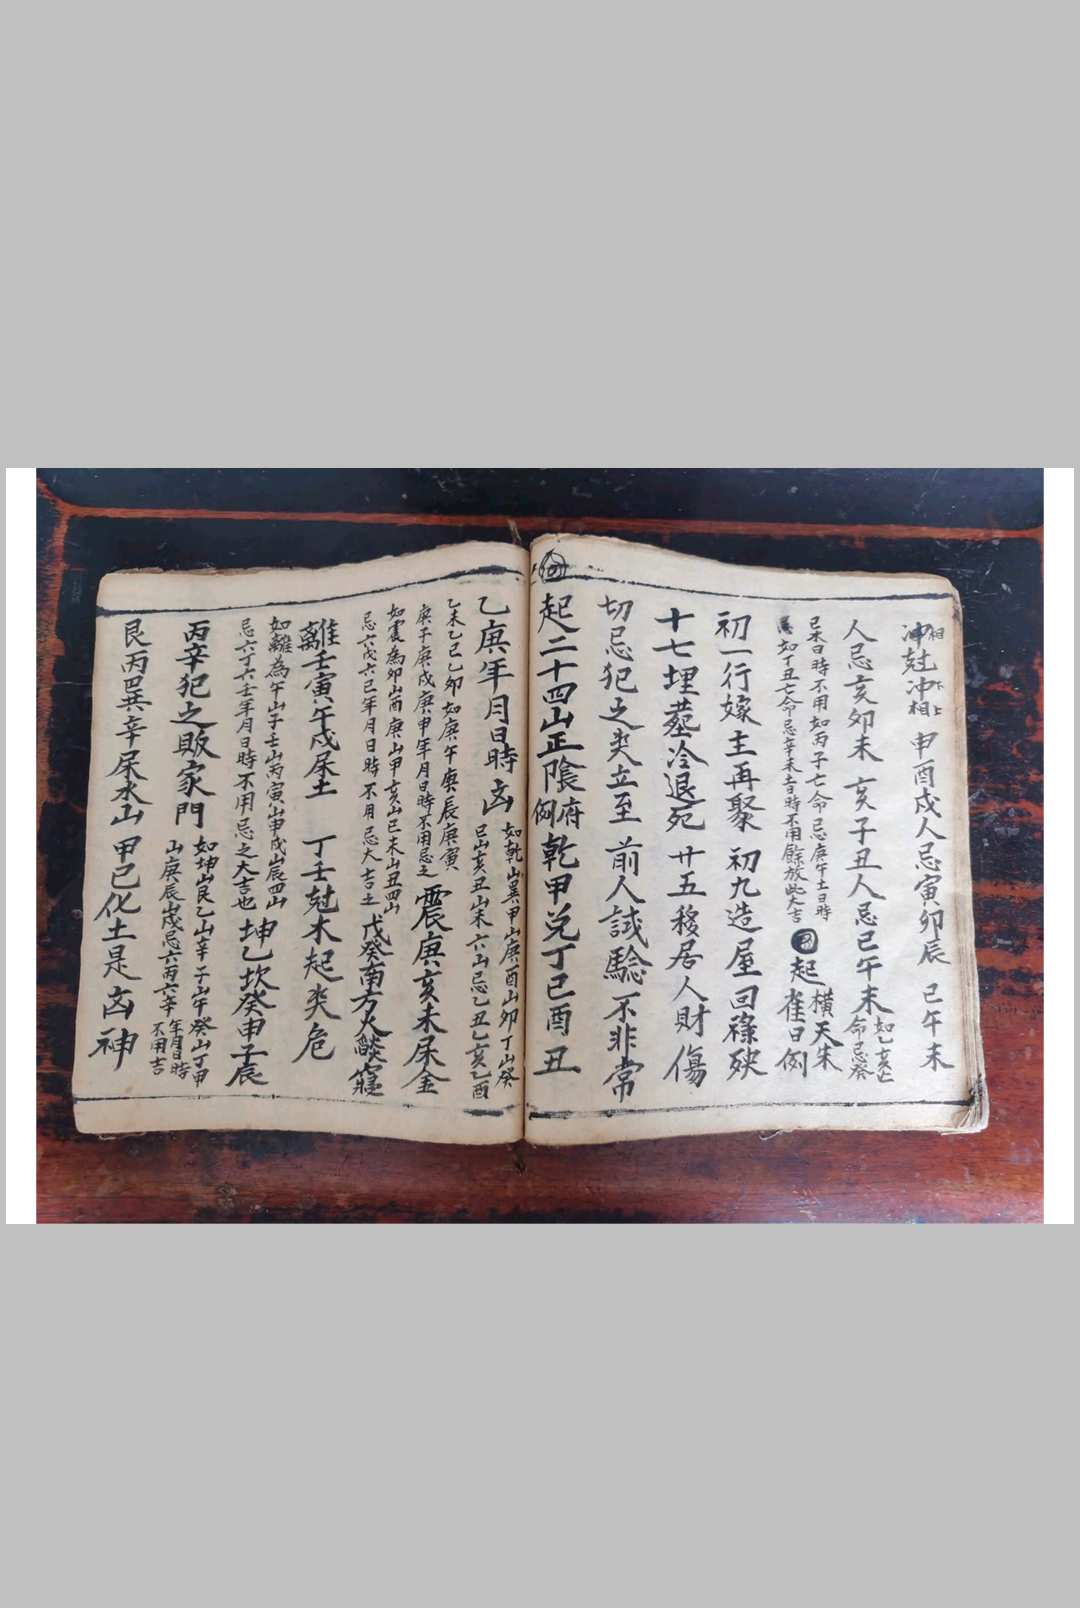 相 冲尅冲相 上下 申酉戍人忌寅卯辰 巳午未
人忌亥卯未 亥子丑人忌巳午未 如乙亥亡命忌癸
巳未日時不用 如丙子亡命忌庚午土日時
如丁丑亡命忌辛未土日時不用餘放此大吉
起橫天朱雀日例
初一行嫁主再聚 初九造屋回祿殃
十七埋塟冷退死 廿五移居人財傷
切忌犯之災立至 前人試驗不非常
起二十四山正陰府例 乾甲兑丁巳酉丑
乙庚年月日時凶 如乾山巽甲山庚酉山卯丁山癸
巳山亥丑山未六山忌乙丑乙亥乙酉
乙未乙巳乙卯 如庚午庚辰庚寅
庚子庚戍庚申年月日時不用忌之 震庚亥未屎金
如震為卯山酉庚山甲亥山巳未山丑四山
忌六戊六己年月日時不用忌大吉之 戊癸南方火燄
離壬寅午戍屎土 丁壬尅木起災危
如離為午山子壬山丙寅山申戍山辰四山
忌六丁六壬年月日時不用忌之大吉也 坤乙坎癸申子辰
丙辛犯之販家門 如坤山艮乙山辛子山午癸山丁甲
山庚辰山戍忌六丙六辛年月日時不用吉
艮丙巽辛屎水山 甲己化土是凶神